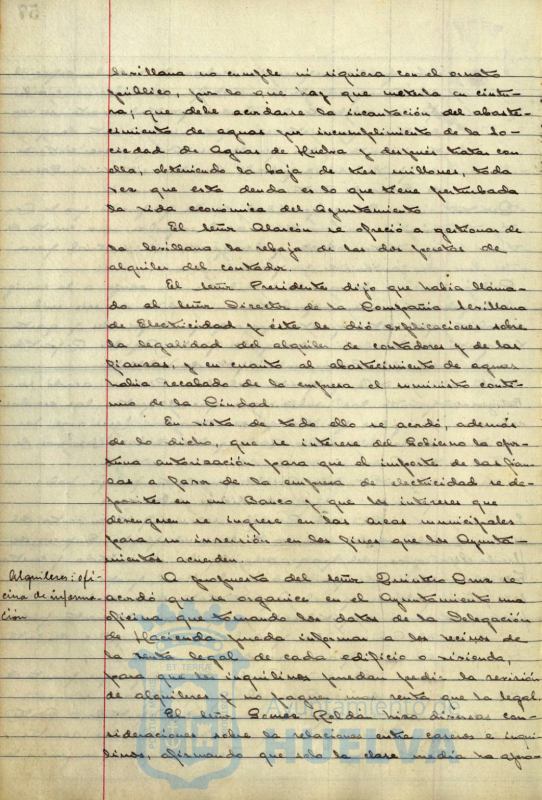 Sevillana no cumple ni siquiera con el ornato
público, por lo que hay que meterla en cintu-
ra; que debe acordarse la incautación del abaste-
cimiento de aguas por incumplimiento de la So-
ciedad de Aguas de Huelva y después tratar con
ella, obteniendo la baja de tres millones, toda
vez que esta deuda es lo que tiene perturbada
la vida económica del Ayuntamiento
El Señor Alarcón se ofreció a gestionar de
la Sevillana la rebaja de las dos pesetas de
alquiler del contador.
El Señor Presidente dijo que había llama-
do al Señor Director de la Compañía Sevillana
de Electricidad y éste le dió explicaciones sobre
la legalidad del alquiler de contadores y de las
fianzas, y en cuanto al abastecimiento de aguas
había recabado de la empresa el suministro conti-
nuo de la Ciudad.
En vista de todo ello se acordó, además
de lo dicho, que se interese del Gobierno la opor-
tuna autorización para que el importe de las fian-
zas a favor de la empresa de electricidad se de-
posite en un Banco y que los intereses que
devenguen se ingrese en las arcas municipales
para su inversión en los fines que los Ayunta-
mientos acuerden.
Alquileres: ofi-
cina de informa-
ción
A propuesta del Señor Quintero Cruz se
acordó que se organice en el Ayuntamiento una
oficina que tomando los datos de la Delegación
de Hacienda pueda informar a los vecinos de
la renta legal de cada edificio o vivienda,
para que los inquilinos puedan pedir la revisión
de alquileres y no paguen mas renta que la legal.
El Señor Gomez Roldán hizo diversas con-
sideraciones sobre la relaciones entre caseros e inqui-
linos, afirmando que solo la clase media ha apro-
ET TERRÆ
Ayuntamiento de
HUELVA